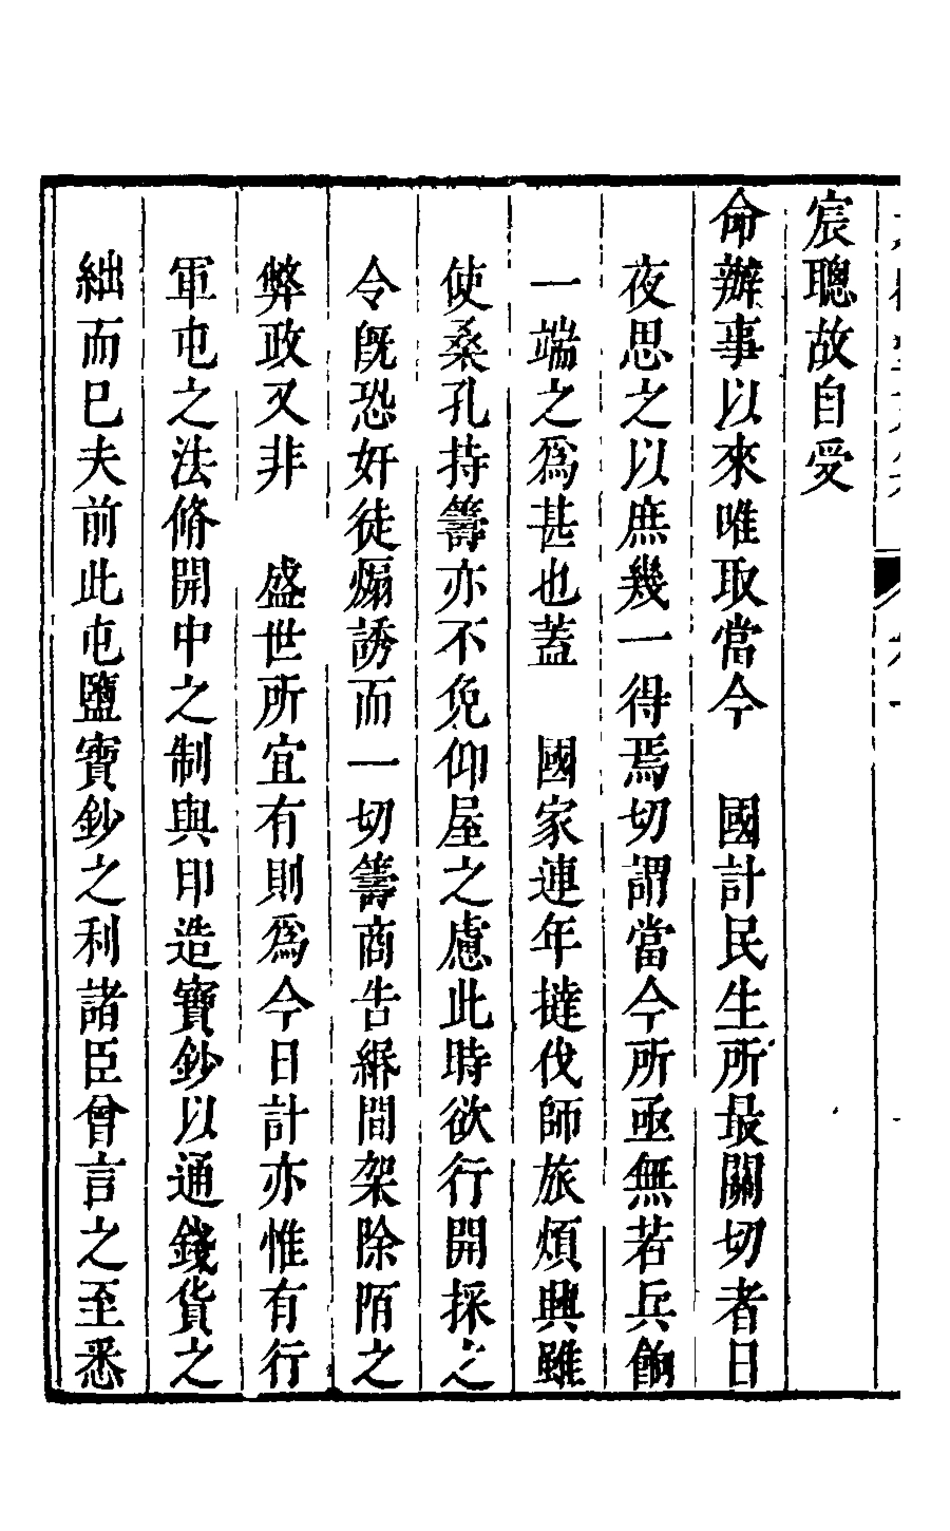 宸聰故自受
命辦事以來唯取當今　國計民生所最關切者日
夜思之以庶幾一得焉切謂當今所亟無若兵餉
一端之爲甚也蓋　國家連年撻伐師旅煩興雖
使桑孔持籌亦不免仰屋之慮此時欲行開採之
令旣恐奸徒煽誘而一切籌商告緡間架除陌之
弊政又非　盛世所宜有則爲今日計亦惟有行
軍屯之法脩開中之制與印造寶鈔以通錢貨之
絀而已夫前此屯鹽寶鈔之利諸臣曾言之至悉